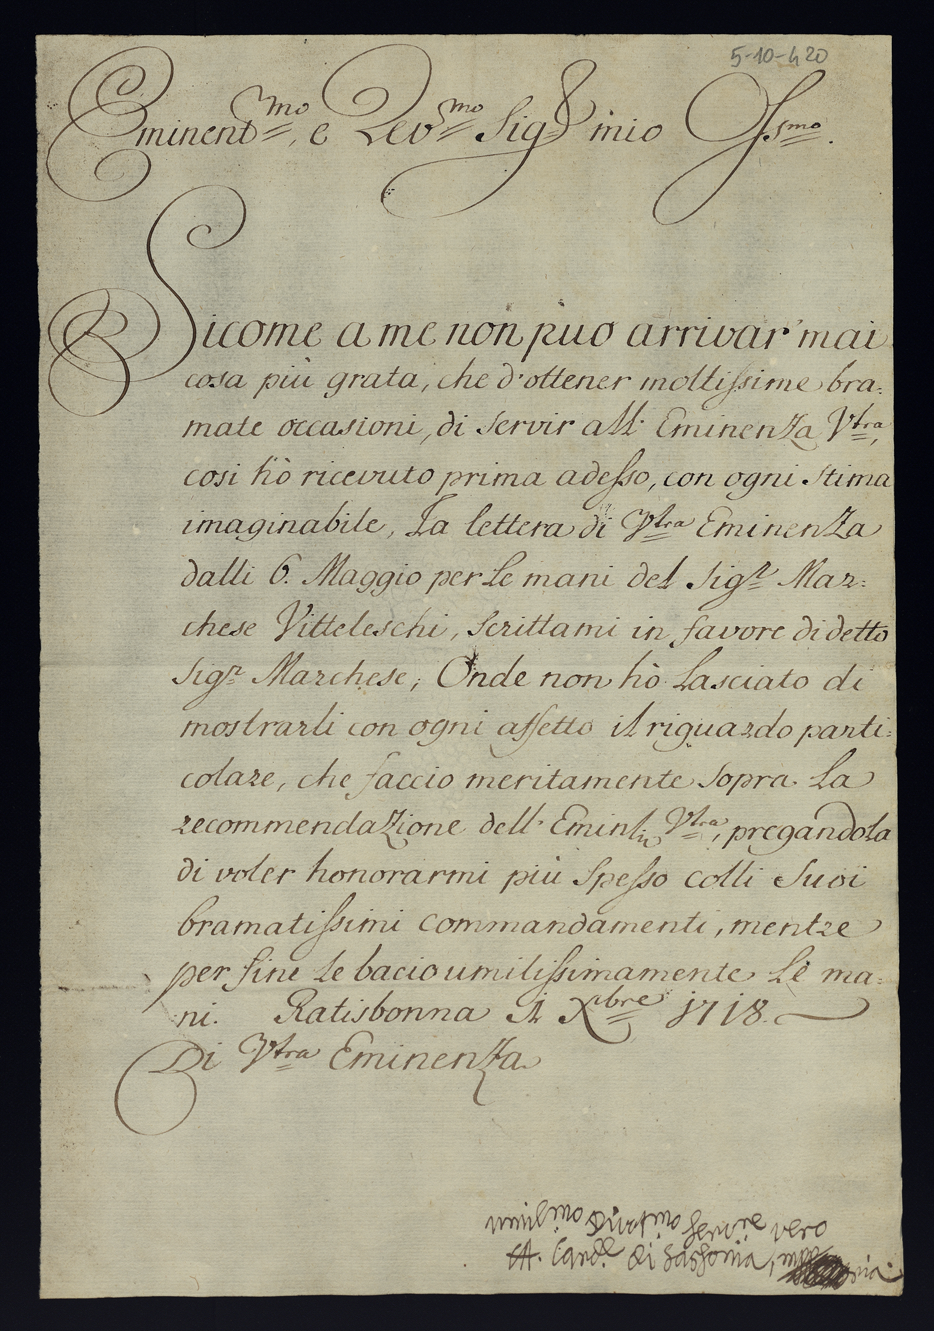 5-10-420
Eminent.mo, e Rev.mo Sig.r mio Oss.mo.
Sicome a me non può arrivar' mai
cosa più grata, che d'ottener moltissime bra:
mate occasioni, di servir all' Eminenza V.tra,
cosi hò ricevuto prima adesso, con ogni stima
imaginabile, La lettera di V.tra Eminenza
dalli 6. Maggio per le mani del Sig.r Mar:
chese Vitteleschi, scrittami in favore di detto
Sig.r Marchese; Onde non hò lasciato di
mostrarli con ogni affetto il riguardo parti:
colare, che faccio meritamente sopra la
recommendazione dell' V.tra, pregandola
di voler honorarmi più spesso colli suoi
bramatissimi commandamenti, mentre
per fine le bacio umilissimamente le ma:
ni. Ratisbonna Xbre 1718.
Di V.tra Eminenza
umil.mo servre vero
A. Card.le di Sassonia,